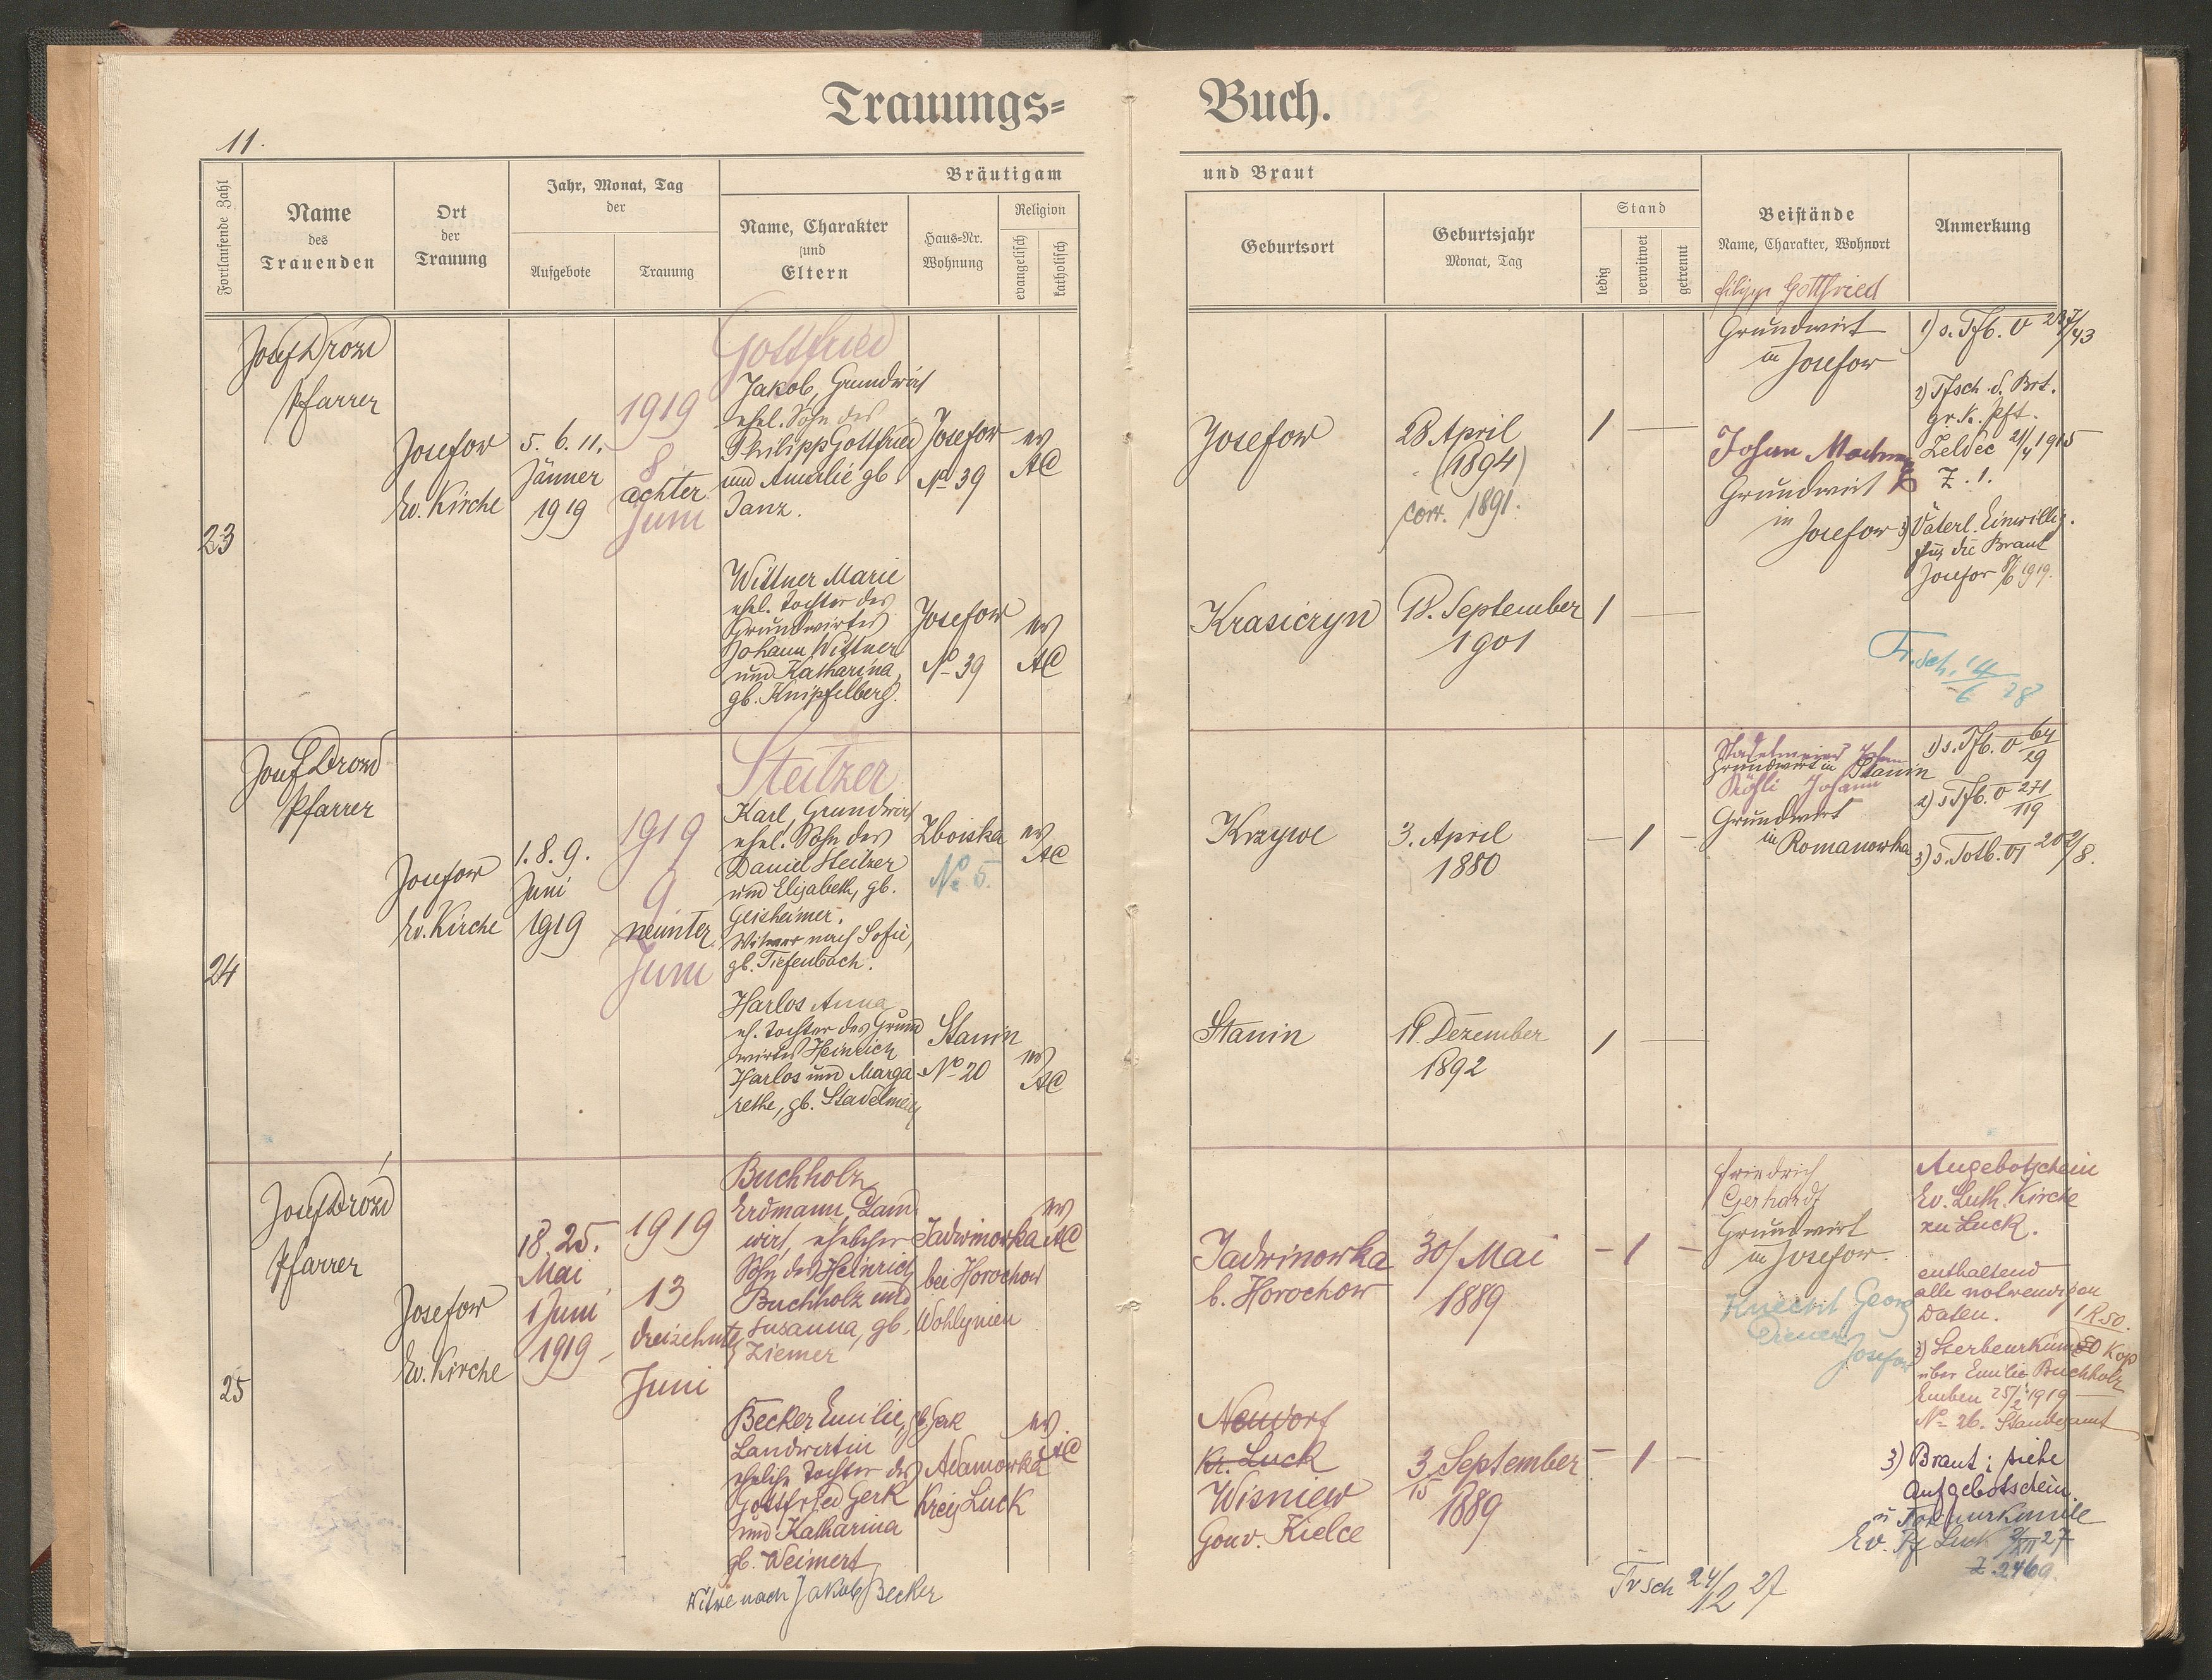 Trauungs= Buch.
11.
Fortlaufende Zahl
Name
des
Trauenden
Ort
der
Trauung
Jahr, Monat, Tag
der
Aufgebote
Trauung
Bräutigam
Name, Charakter
und
Eltern
Haus=Nr.
Wohnung
Religion
evangelisch
katholisch
und Braut
Geburtsort
Geburtsjahr
Monat, Tag
Stand
ledig
verwitwet
getrennt
Beistände
Name, Charakter, Wohnort
Anmerkung
23
Josef Drozd
Pfarrer
Josefow
Ev. Kirche
5. 6. 11.
Jänner
1919
1919
8
achter
Juni
Gottfried
Jakob, Grundwirt
ehel. Sohn des
Philipp Gottfried
und Amalie gb.
Janz.
Josefow
No 39
ev
AC
Josefow
28 April
(1894)
corr. 1891.
1
Filipp Gottfried
Grundwirt
in Josefow
Johan
Grundwirt
in
Josefow
1) s. Tfb. V 237/43
2) Tfsch. d. Brt.
gr. k. Pft.
Zeldec 21/4 1915
Z. 1.
3) Väterl. Einwillig.
für die Braut
Josefow 8/6 1919.
Wittner Marie
ehel. Tochter des
Grundwirtes
Johann Wittner
und Katharina,
gb. Knipfelberg.
Josefow
No 39
ev
AC
Krasiczyn
18. September
1901
1
Tr. sch. 14/6 28
24
Josef Drozd
Pfarrer
Josefow
Ev. Kirche
1. 8. 9.
Juni
1919
1919
9
neunter
Juni
Steitzer
Karl, Grundwirt
ehel. Sohn des
Daniel Steitzer
und Elisabeth, gb.
Geisheimer.
Witwer nach Sofie,
gb. Tiefenbach.
Zboiska
No 5.
ev
AC
Krzywe
3. April
1880
1
Stadelmeier Johan
Grundwirt in Stanin
Johann
Grundwirt
in Romanowka
1) s. Tfb. V 64/29
2) s Tfb. V 271/119
3) s. Totb. VI 202/8.
Harlos Anna
eh. Tochter des Grund
wirtes Heinrich
Harlos und Marga
rethe, gb. Stadelmeier
Stanin
No 20
ev
AC
Stanin
19. Dezember
1892
1
25
Josef Drozd
Pfarrer
Josefow
Ev. Kirche
18, 25.
Mai
1 Juni
1919
1919
13
dreizehnter
Juni
Buchholz
Erdmann, Land
wirt, ehelicher
Sohn des Heinrich
Buchholz und
Susanna, gb.
Ziemer
Jadwinowka
bei Horochow
Wohlynien
ev
AC
Jadwinowka
b. Horochow
30/ Mai
1889
1
Friedrich
Gerhardt
Grundwirt
in Josefow.
Knecht Georg
Diener
Josefow
Augebotschein
Ev. Luth. Kirche
zu Luck.
enthaltend
alle notwendigen
Daten.
1 R 50.
2) Sterbeurkunde
50 Kop
über Emilie Buchholz
Emben 25/2 1919
No 26. Standesamt
Becker Emilie, gb. Gerk
Landwirtin
eheliche Tochter des
Gottfried Gerk
und Katharina
gb. Weimert
Witwe nach Jakob Becker
Adamowka
Kreis Luck
ev.
AC
Neudorf
Kr. Luck
Wisniew
Gouv. Kielce
3. September
15
1889
1
3) Braut: siehe
Aufgebotschein.
Ev. Pf. Luck 2/XII 27
Z 2469.
Tr sch 24/12 27